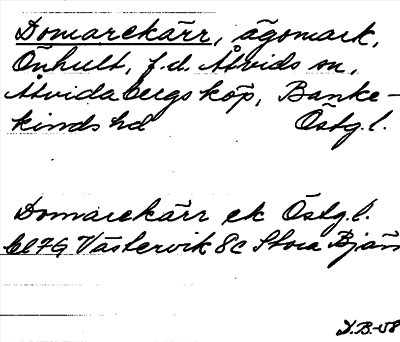 Domarekärr, ägomark,
Önhult, f.d. Åtvids sn,
Åtvidabergs köp, Banke-
kinds hd Östg.l.
Domarekärr ek Östg.l.
bl 7G Västervik 8c Stora Bjärs
D.B.-58